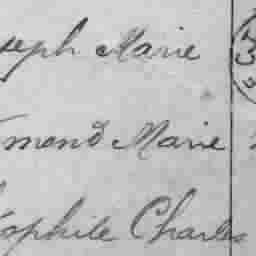 seph Marie
mond Marie
ophile Charles